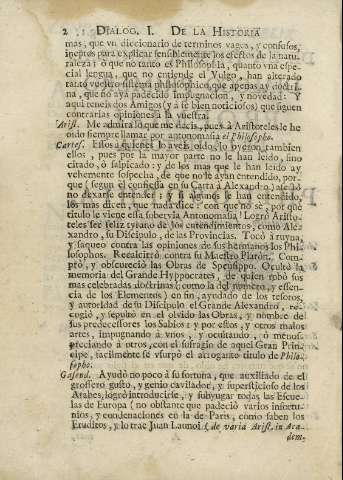 2 DIALOG. I. DE LA HISTORIA
mas, que vn diccionario de terminos vagos, y confusos,
ineptos para explicar sensiblemente los efectos de la natu-
raleza; ò que no tanto es Philosophia, quanto vna espe-
cial lengua, que no entiende el Vulgo, han alterado
tanto vuestro sistema philosophico, que apenas ay doctri-
na, que no aya padecido impugnacion, y novedad. Y
aqui teneis dos Amigos (y à fè bien noticiosos) que siguen
contrarias opiniones à la vuestra.
Arist. Me admira lo que me decis, pues à Aristoteles le he
oido siempre llamar por antonomasia el Philosopho.
Cartes. Essos à quienes lo aveis oido, lo oyeron tambien
ellos, pues por la mayor parte no le han leido, sino
citado, ò salpicado: y de los mas que le han leido ay
vehemente sospecha, de que no le ayan entendido, por-
que (segun èl confiessa en su Carta à Alexandro)
no dexarse entender: y si algunos le han entendido,
los mas dicen, que nada dice: con que no sè, por què
titulo le viene essa sobervia Antonomasia! Logrò Aristo-
teles ser feliz tyrano de los entendimientos, como Ale-
xandro, su Discipulo, de las Provincias. Tocò à ruyna,
y saqueo contra las opiniones de sus hermanos los Phi-
losophos. Recalcitrò contra su Maestro Platòn. Com-
prò, y obscureciò las Obras de Speusippo. Ocultò la
memoria del Grande Hyppocrates, de quien robò sus
mas celebradas doctrinas (como la del numero, y essen-
cia de los Elementos) en fin, ayudado de los tesoros,
y autoridad de su Discipulo el Grande Alexandro, re-
cogiò, y sepultò en el olvido las Obras, y nombre de
sus predecessores los Sabios: y por estos, y otros malos
artes, impugnando à vnos, y ocultando, ò menos-
preciando à otros, con el sufragio de aquel Gran Prin-
cipe, facilmente se vsurpò el arrogante titulo de Philo-
sopho.
Gasend. Ayudò no poco à su fortuna, que auxiliado de el
grossero gusto, y genio cavilador, y supersticioso de los
Arabes, logrò introducirse, y subyugar todas las Escue-
las de Europa (no obstante que padeciò varios infortu-
nios, y condenaciones en la de Paris, como saben los
Eruditos, y lo trae Juan Launoi (de varia Arist. in Aca-
dem-